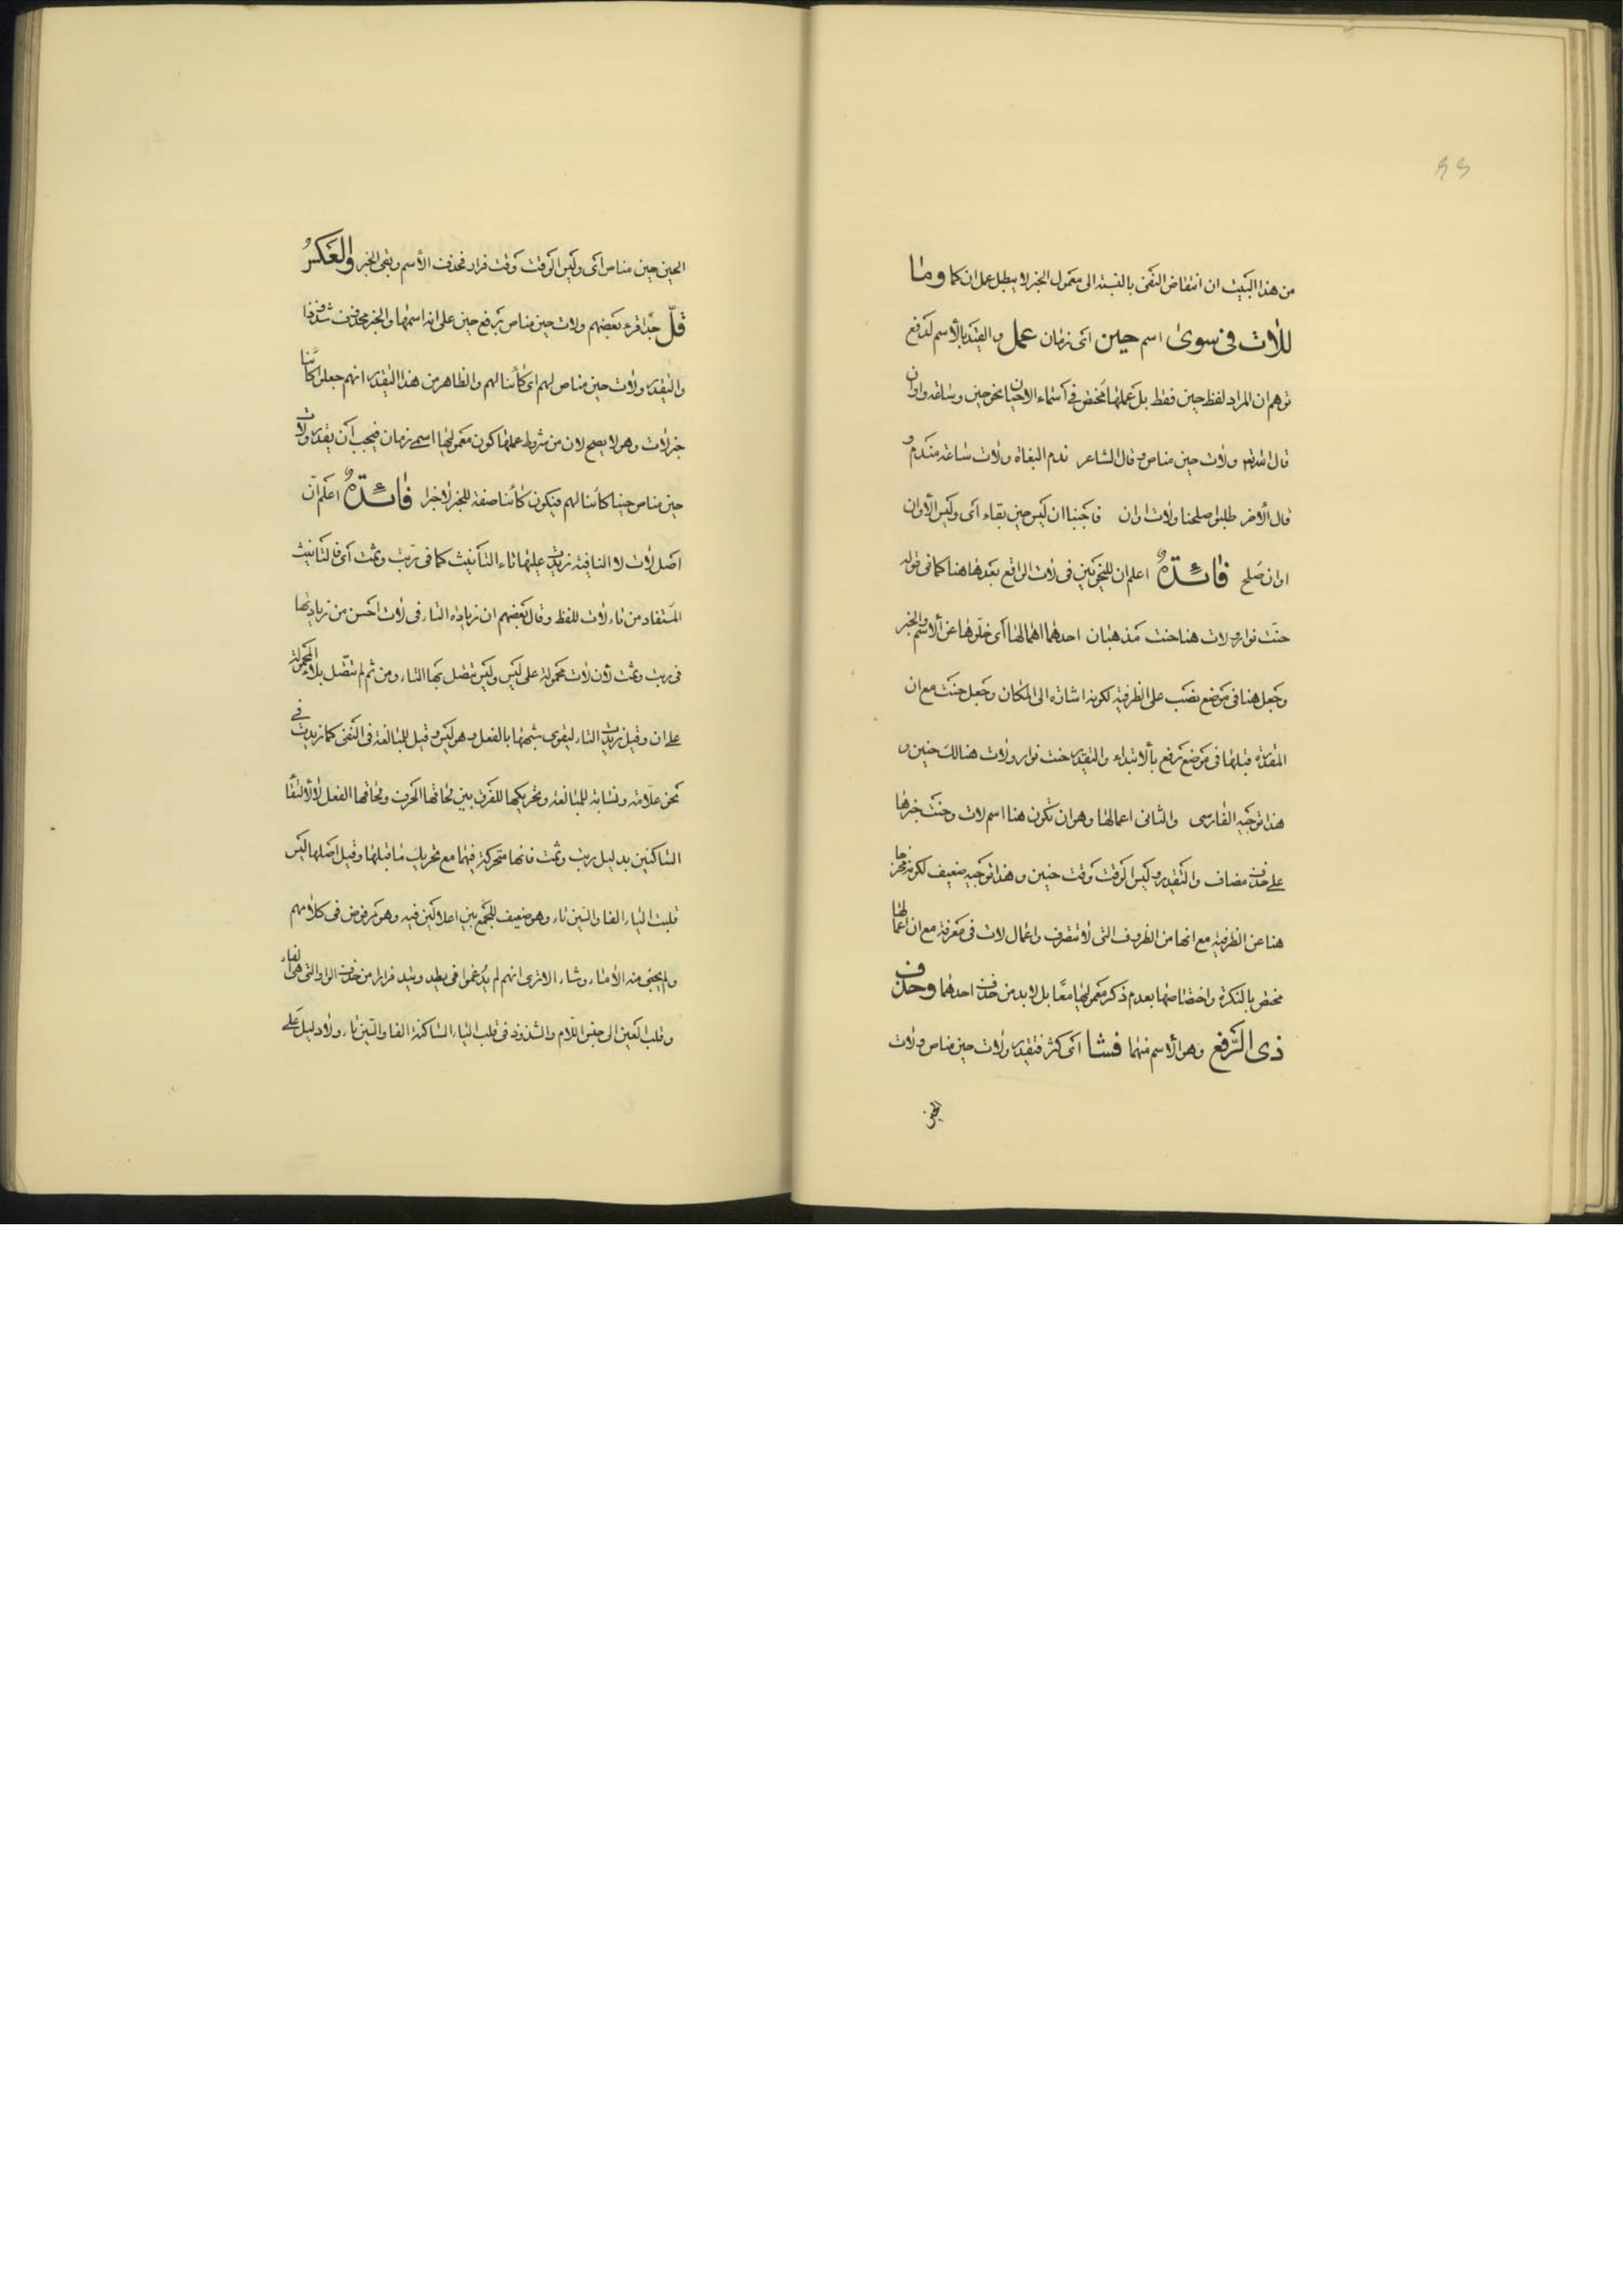 ٤٤
من هذا البيت ان انتقاض النفى بالنسبة الى معمول الخبر لا يبطل عمل ان كما وما
للات فى سوى اسم حين اى زمان عمل والقيد بالاسم لدفع
توهم ان المراد لفظ حين فقط بل عملها مختص فى اسماء الاحيان نحو حين وساعة واوان
قال الله تع ولات حين مناص وقال الشاعر ندم البغاة ولات ساعة مندم و
قال الاخر طلبوا صلحنا ولات اوان فاجبنا ان ليس حين بقاء اى وليس الاوان
اوان صلح فائدة اعلم ان للنحويين فى لات الواقع بعدها هنا كما فى قوله
حنّت نوار ولات هنا حنت مذهبان احدهما اهمالها اى خلوها عن الاسم والخبر
وجعل هنا فى موضع نصب على الظرفية لكونه اشارة الى المكان وجعل حنت مع ان
المقدرة قبلها فى موضع رفع بالابتداء والتقدير حنت نوار ولات هنالك حنين و
هذا توجيه الفارسى والثانى اعمالها وهو ان تكون هنا اسم لات وحنت خبرها
على حذف مضاف والتقدير وليس الوقت وقت حنين وهذا توجيه ضعيف لكونه مخرجا
هنا عن الظرفية مع انها من الظروف التى لا تتصرف واعمال لات فى معرفة مع ان اعمالها
مختص بالنكرة واختصاصها بعدم ذكر معموليها معًا بل لا بد من حذف احدهما وحذف
ذى الرّفع وهو الاسم منهما فشا اى كثر فتقدير ولات حين مناص ولات
الحين
الحين حين مناص اى وليس الوقت وقت فرار فحذف الاسم وبقى الخبر والعكسُ
قلّ جدًّا قرء بعضهم ولات حين مناص برفع حين على انه اسمها والخبر محذوف شذوذا
والتقدير ولات حين مناص لهم اى كائنا لهم والظاهر من هذا التقدير انهم جعلوا كائنا
خبر لات وهو لا يصح لان من شروط عملها كون معموليها اسمى زمان فيجب ان يقدر ولات
حين مناص حينا كائنا لهم فيكون كائنا صفة للخبر لا خبرا فائدةٌ اعلم انّ
اصل لات لا النافية زيدت عليها تاء التأنيث كما فى ربت وثمت اى فالتأنيث
المستفاد من تاء لات للفظ وقال بعضهم ان زيادة التاء فى لات احسن من زيادتها
فى ربت وثمت لان لات محمولة على ليس وليس تتصل بها التاء ومن ثم لم تتّصل بلاء المحمولة
على ان وقيل زيدت التاء ليقوى شبهها بالفعل وهو ليس وقيل للمبالغة فى النفى كما زيدت فى
نحو علامة ونسابة للمبالغة وتحريكها للفرق بين لحاقها الحرف ولحاقها الفعل لا لالتقا
الساكنين بدليل ربت وثمت فانها متحركة فيهما مع تحريك ما قبلها وقيل اصلها ليس
قلبت الياء الفا والسين تاء وهو ضعيف للجمع بين اعلالين فيه وهو مرفوض فى كلامهم
ولم يجئ منه الا ماء وشاء الا ترى انهم لم يدغموا فى يطد ويتد فرارا من حذف الواو التى هى الفاء
وقلب العين الى جنس اللام والشذوذ فى قلب الياء الساكنة الفا والسين تاء ولا دليل على